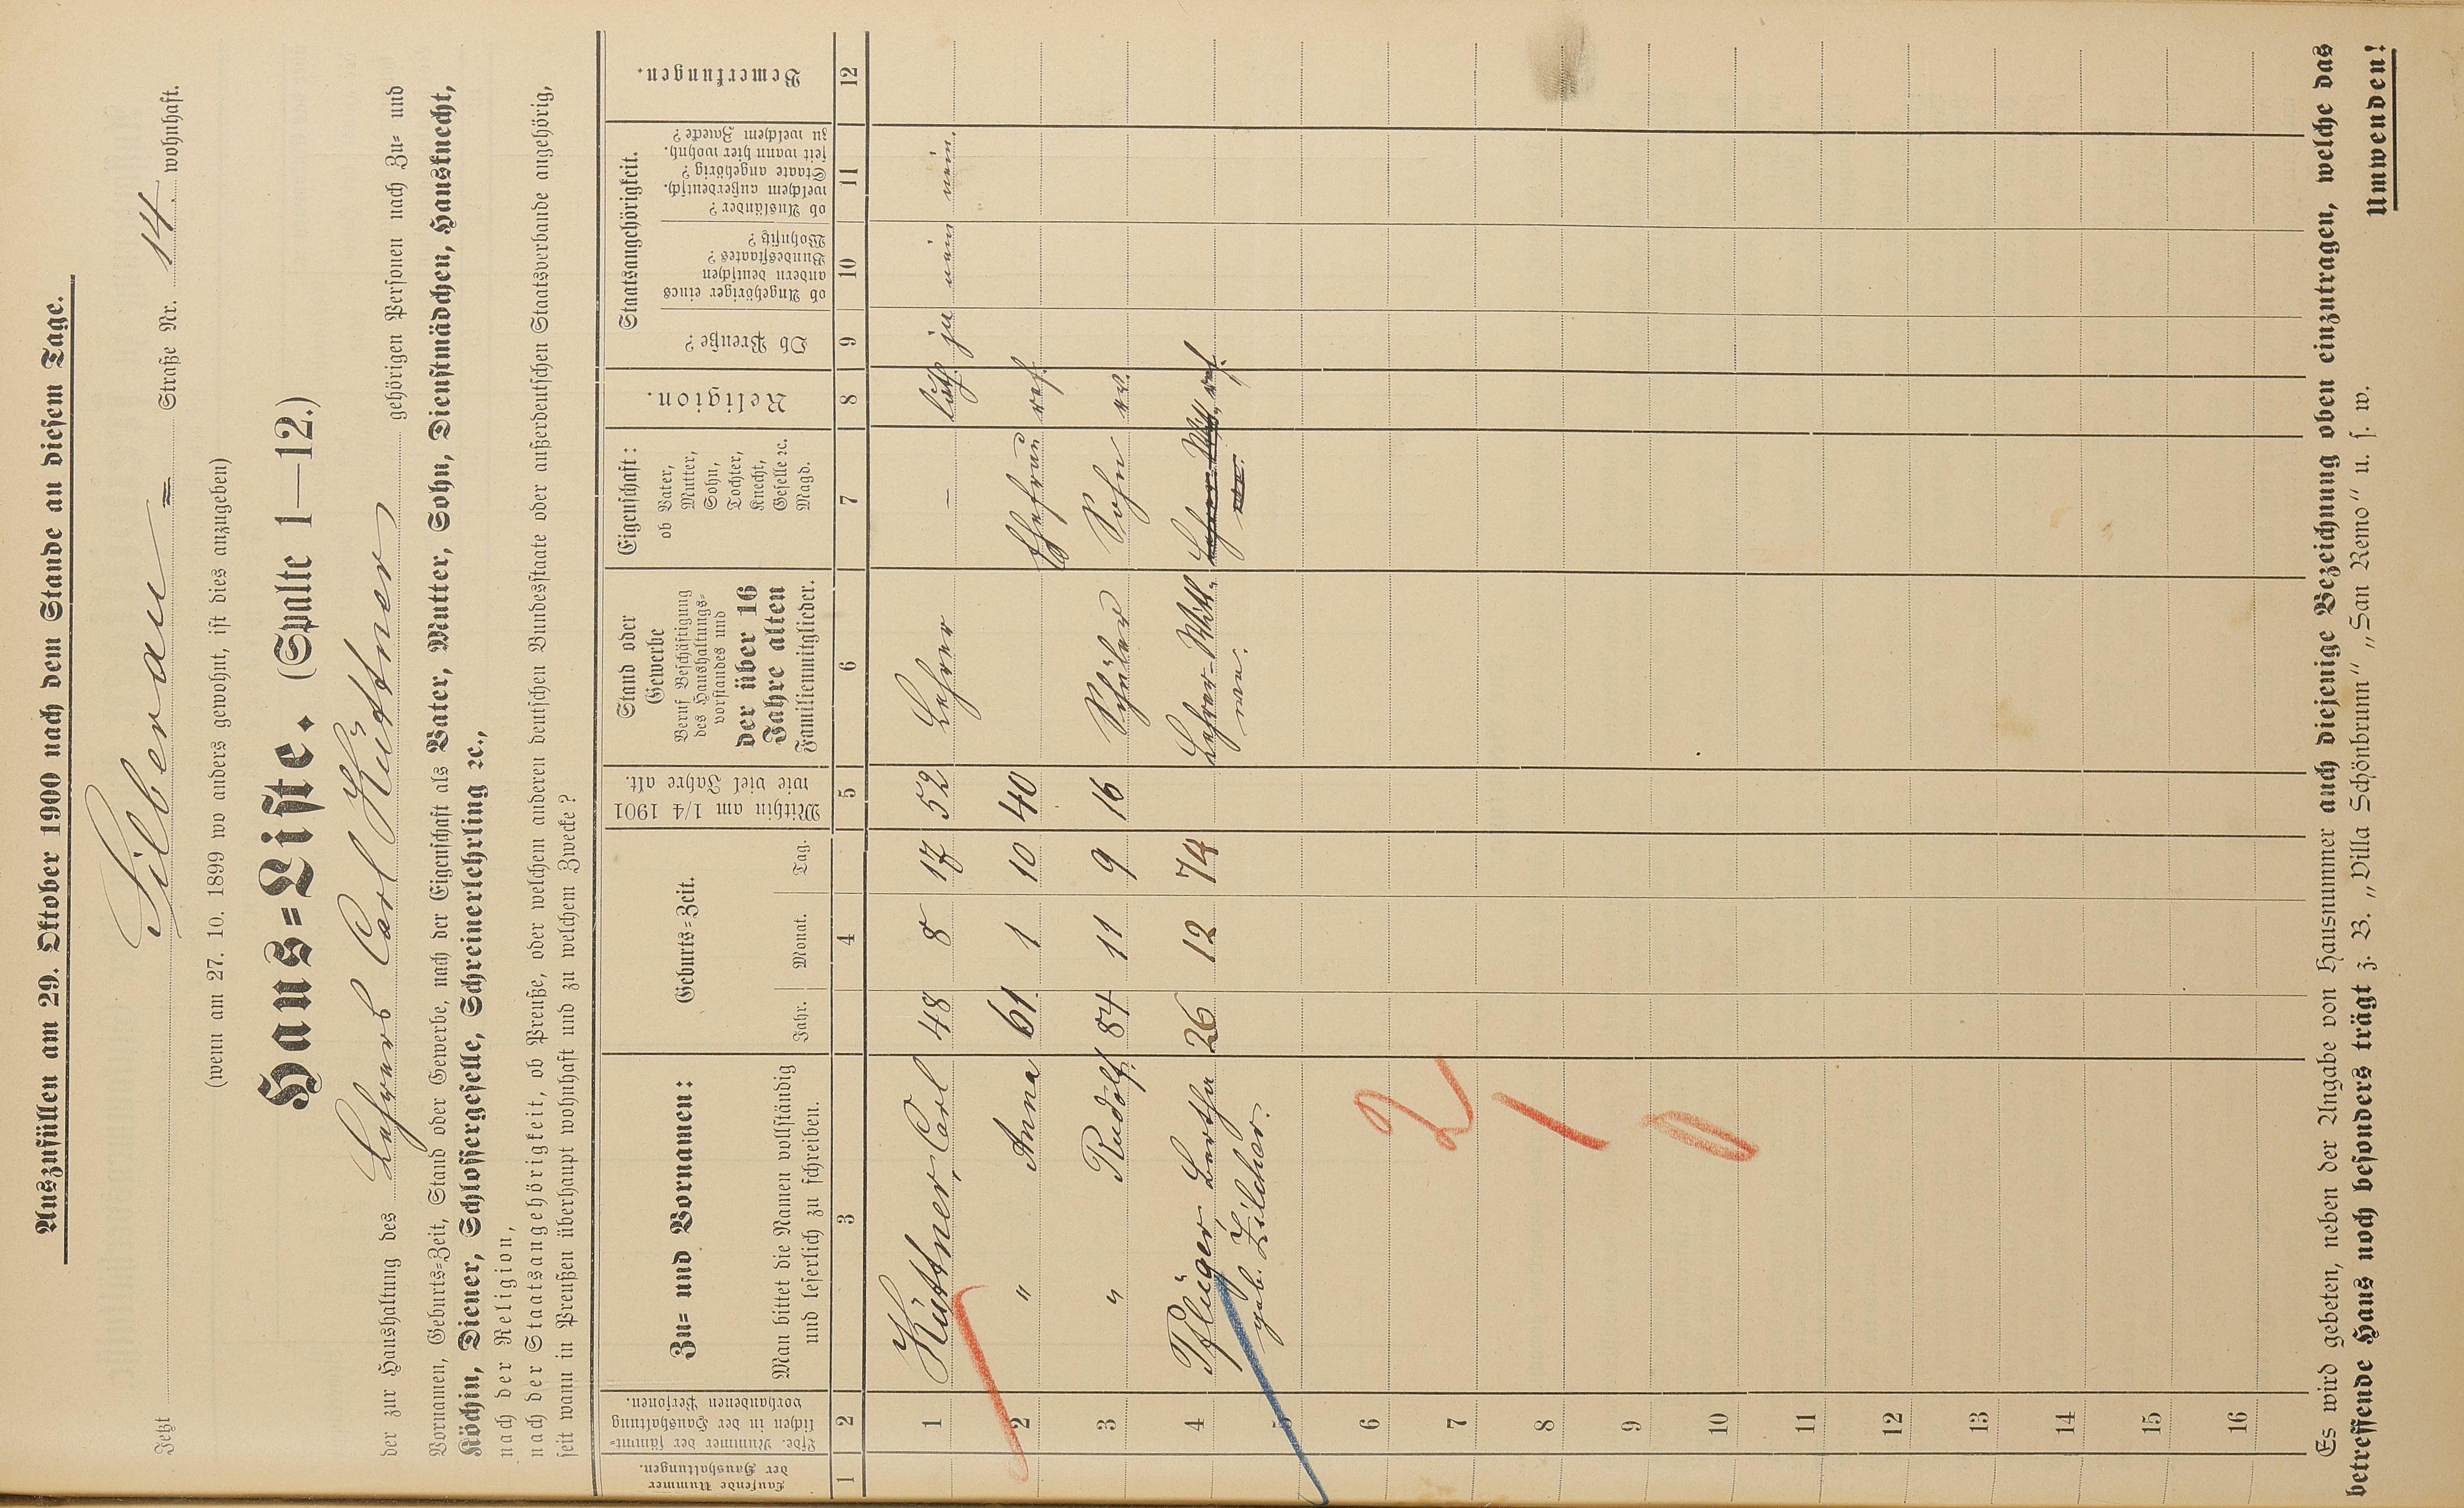 Auszufüllen am 29. Oktober 1900 nach dem Stande an diesem Tage.
Jetzt Silberau = Straße Nr. 14. wohnhaft.
(wenn am 27. 10. 1899 wo anders gewohnt, ist dies anzugeben)
Haus=Liste. (Spalte 1—12.)
der zur Haushaltung des Lehrers Carl Küttner gehörigen Personen nach Zu= und
Vornamen, Geburts=Zeit, Stand oder Gewerbe, nach der Eigenschaft als Vater, Mutter, Sohn, Dienstmädchen, Hausknecht,
Köchin, Diener, Schlossergeselle, Schreinerlehrling ꝛc.,
nach der Religion,
nach der Staatsangehörigkeit, ob Preuße, oder welchem anderen deutschen Bundesstaate oder außerdeutschen Staatsverbande angehörig,
seit wann in Preußen überhaupt wohnhaft und zu welchem Zwecke?
Laufende Nummer
der Haushaltungen.
Lfde. Nummer der sämmt=
lichen in der Haushaltung
vorhandenen Personen.
Zu= und Vornamen:
Man bittet die Namen vollständig
und leserlich zu schreiben.
Geburts=Zeit.
Jahr. Monat. Tag.
Mithin am 1/4 1901
wie viel Jahre alt.
Stand oder
Gewerbe
Beruf Beschäftigung
des Haushaltungs=
vorstandes und
der über 16
Jahre alten
Familienmitglieder.
Eigenschaft:
ob Vater,
Mutter,
Sohn,
Tochter,
Knecht,
Geselle ꝛc.
Magd.
Religion.
Staatsangehörigkeit.
Ob Preuße?
ob Angehöriger eines
andern deutschen
Bundesstaates?
Wohnsitz?
ob Ausländer?
welchem außerdeutsch.
Staate angehörig?
seit wann hier wohnh.
zu welchem Zwecke?
Bemerkungen.
1 2 3 4 5 6 7 8 9 10 11 12
1 Küttner, Carl 48 8 17 52 Lehrer — luth. ja nein nein.
2 " Anna 61. 1 10 40 Ehefrau ref.
3 " Rudolf. 84 11 9 16 Schüler Sohn ev.
4 Pflüger, Bertha 26 12 74 Lehrer-Witt- Lehrer-Witt- ref.
5 geb. Zilcher. we. we.
6
7 2
8 1
9 0
10
11
12
13
14
15
16
Es wird gebeten, neben der Angabe von Hausnummer auch diejenige Bezeichnung oben einzutragen, welche das
betreffende Haus noch besonders trägt z. B. „Villa Schönbrunn“ „San Remo“ u. s. w.
Umwenden!